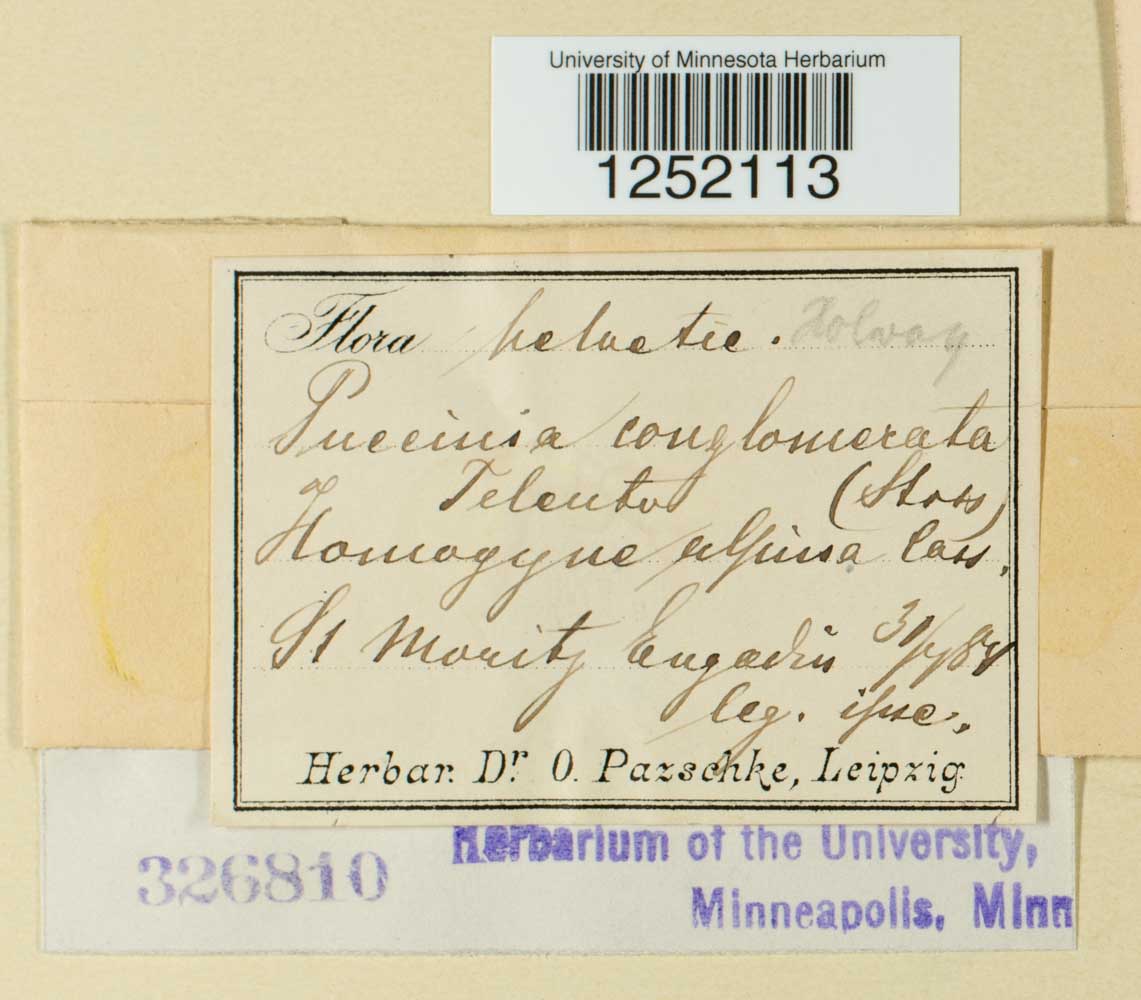 University of Minnesota Herbarium
1252113
Flora helvetic. Holway
Puccinia conglomerata
Teleuto (Strss)
Homogyne alpina Cass.
St Moritz Engadin 31/7 84
leg. ipse.
Herbar. Dr. O. Pazschke, Leipzig.
326810
Herbarium of the University,
Minneapolis, Minn